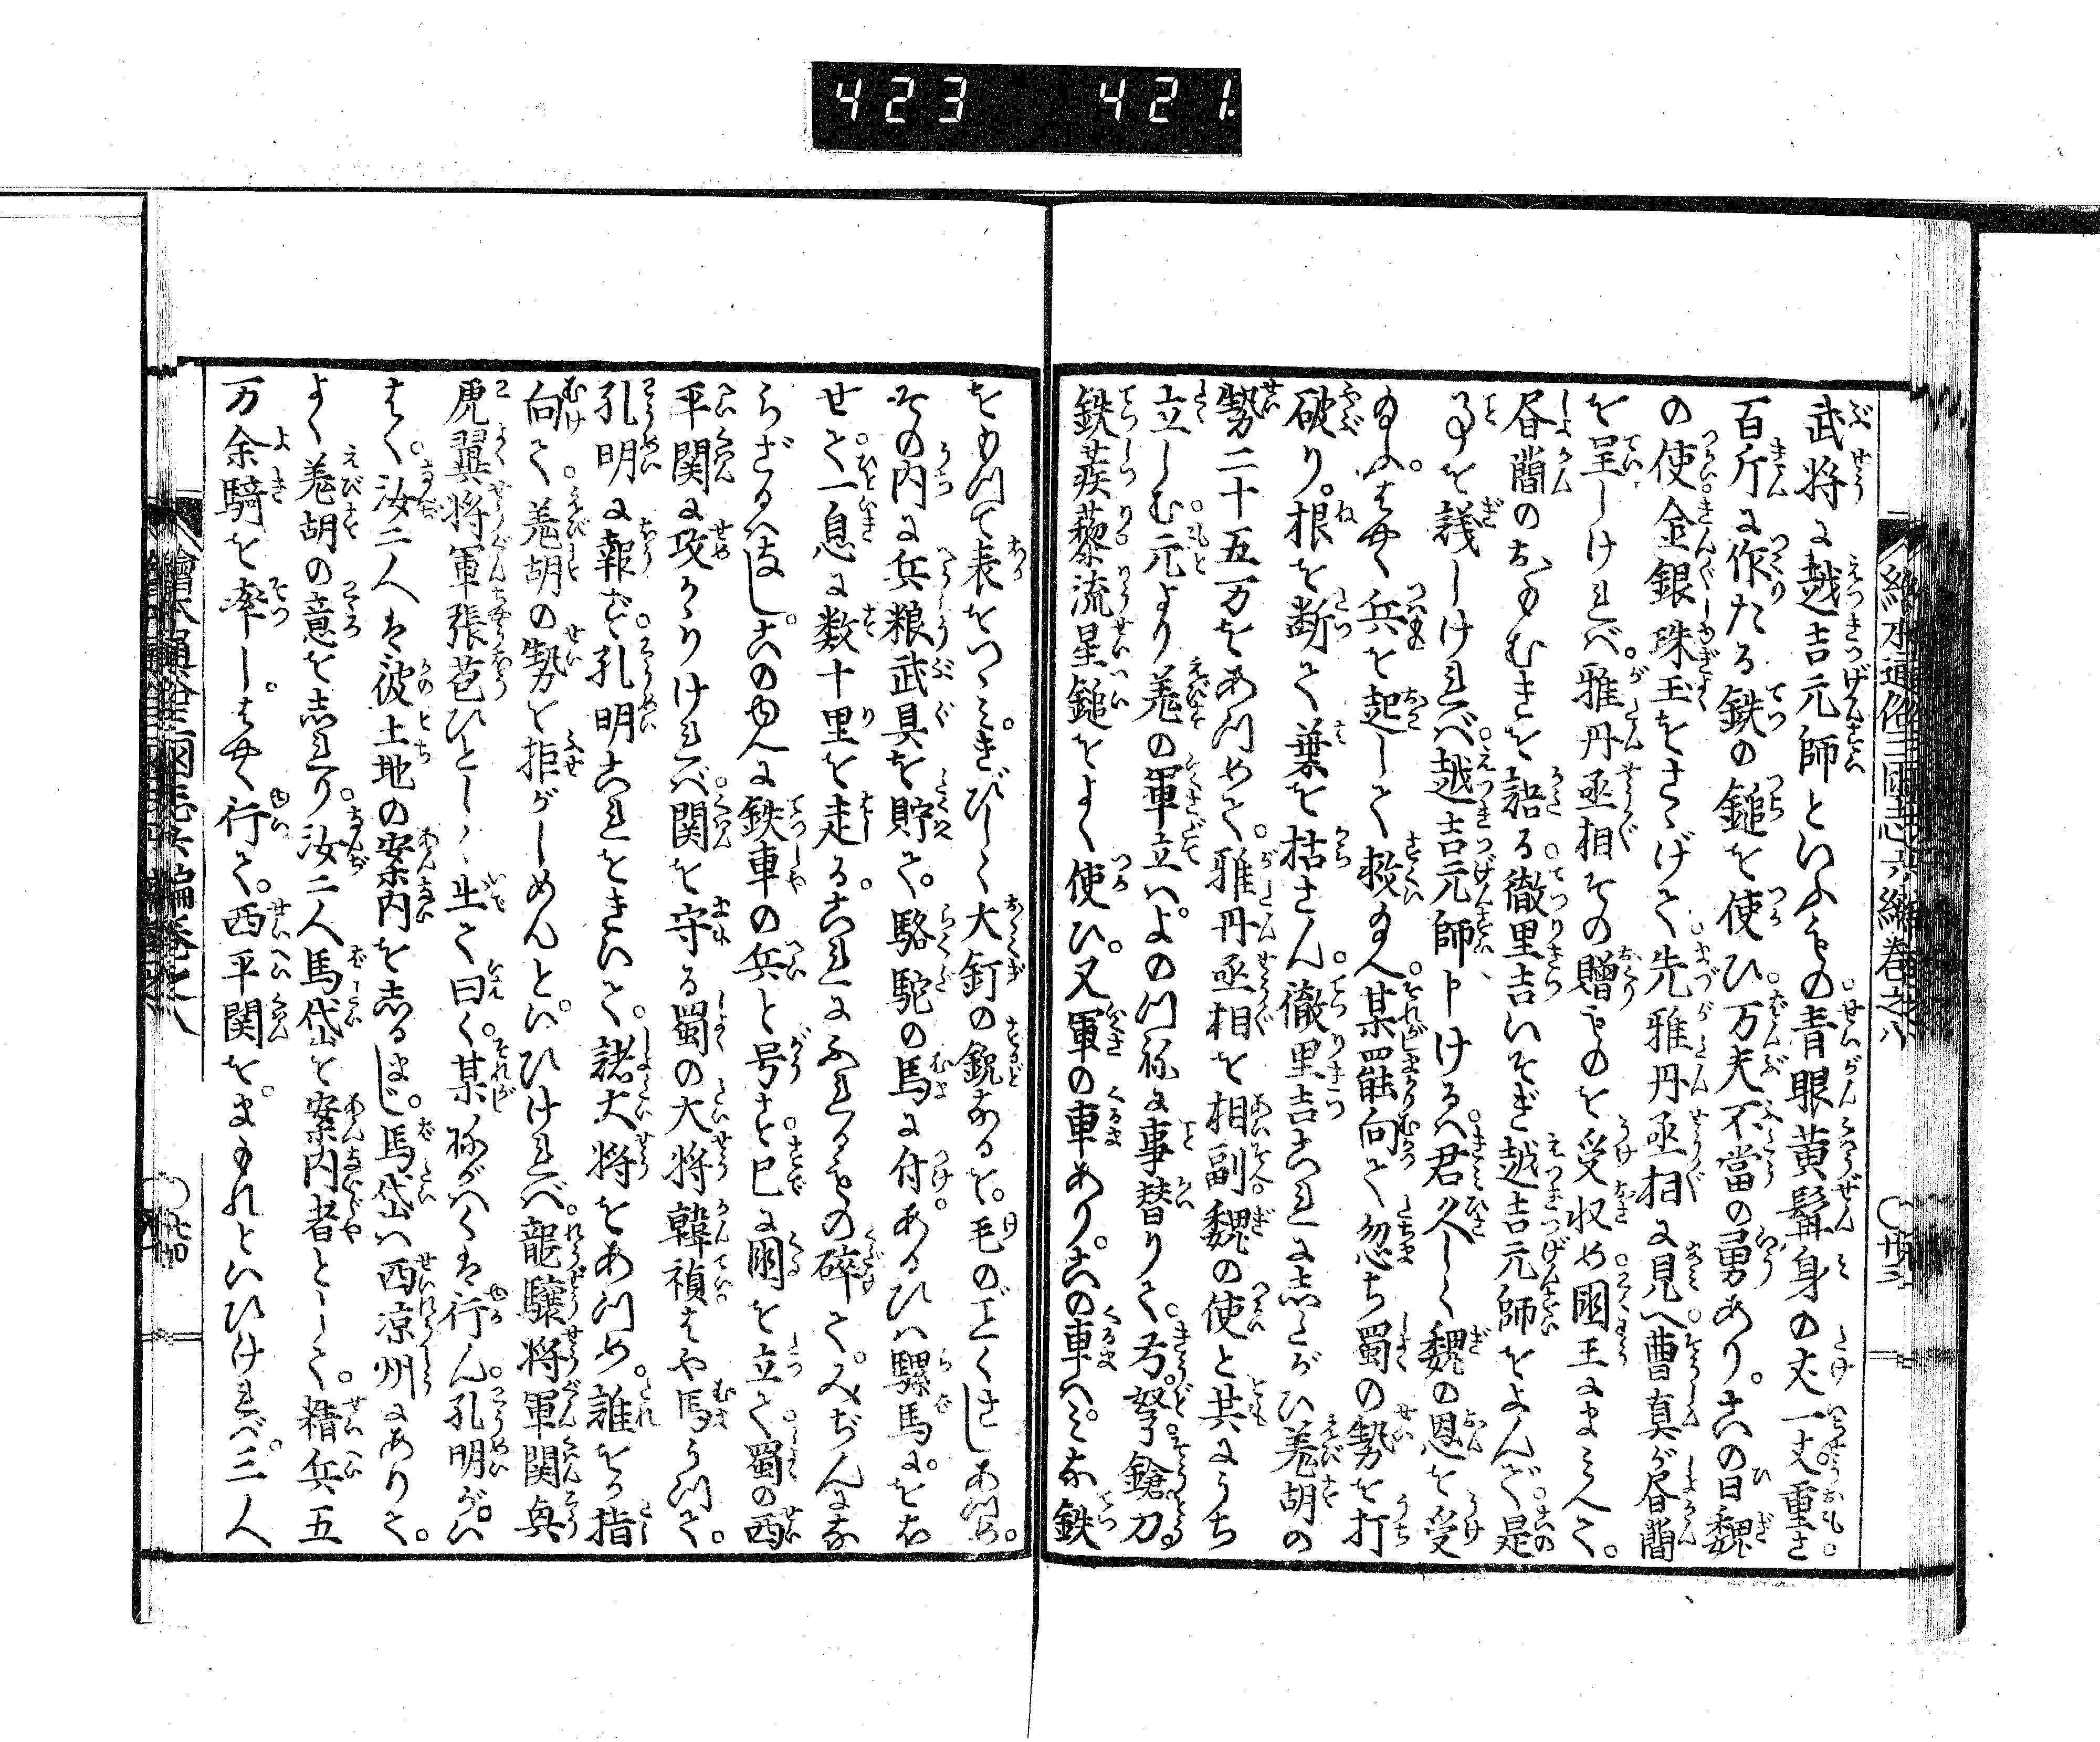 423 421.
繪本通俗三國志六編巻之八
〇廿三
武将に越吉元帥といふもの。青眼黄髯身の丈一丈。重さ
百斤に作たる鉄の鎚を使ひ。万夫不當の勇あり。此の日魏
の使。金銀珠玉をさゝげて。先雅丹丞相に見へ。曹真が昏簡
を呈しければ。雅丹丞相その贈ものを受収め。國王にまみえて。
昏簡のおもむきを語る。徹里吉いそぎ越吉元帥をよんで。是
事を議しければ。越吉元帥申けるは。君久しく魏の恩を受
玉ふ。はやく兵を起して救玉へ。某罷向て忽ち蜀の勢を打
破り。根を断て葉を枯さん。徹里吉これにしたがひ羗胡の
勢二十五万をあつめて。雅丹丞相を相副魏の使と共にうち
立しむ。元より羗の軍立は。よのつねに事替りて。弓弩鎗刀
鉄蒺藜流星鎚をよく使ひ。又軍の車あり。此の車は。みな鉄
をもつて表をつゝみ。きびしく大釘の鋭あるを。毛のごくさしあつめ。
その内に兵粮武具を貯て。駱駝の馬に付。あるひは騾馬に。をお
せて。一息に数十里を走る。これにふれるもの碎て。みぢんにな
らざるはなし。此のゆへに鉄車の兵と号す。已に國を立て。蜀の西
平関に攻かゝりければ。関を守る蜀の大将韓禎はや馬うつて。
孔明に報ず。孔明これをきいて。諸大将をあつめ。誰をか指
向て。羗胡の勢を拒がしめんと。いひければ。龍驤将軍関興
虎翼将軍張苞ひとしく出て曰く。某ねがはくは行ん。孔明が。い
はく。汝二人は彼土地の案内をしるまじ。馬岱は西凉州にありて。
よく羗胡の意をしれり。汝二人馬岱を案内者として。精兵五
万余騎を率し。はやく行て。西平関を。まもれといひければ。三人